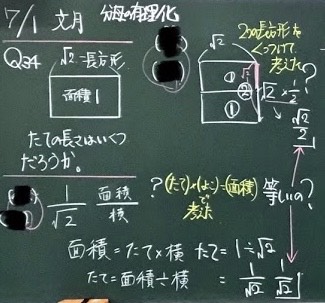 7/1 文月 分母の有理化
Q34 √2 =長方形
面積1
たての長さはいくつ
だろうか。
2つの長方形を
くっつけて
考えた
√2
①
①
②
√2
√2 × 1/2
?
√2/2
等しいの?
? (たて)×(よこ)=(面積)
で
考えた
1/√2 面積/横
面積=たて×横 たて=1÷√2
たて=面積÷横 =1/√2